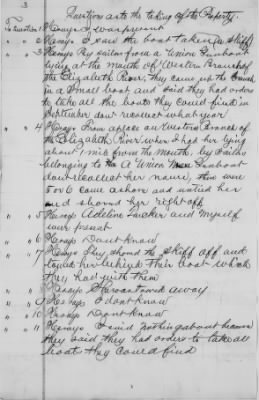 3
Questions as to the taking of the Property.
To question 1 He says I was present
" " 2 He says I said the boat taken (a skiff)
" " 3 He says By sailors from a Union Gunboat
lying at the mouth of Western Branch of
the Elizabeth River, they came up the Branch
in a Small boat, and said they had orders
to take all the boats they could find in
September dont recollect what year
" " 4 He says From a place on Western Branch of
the Elizabeth River where I had her lying
about 1 mile from the Mouth, by Sailors
belonging to the a Union Gunboat
dont recollect her name, there were
5 or 6 came ashore and untied her
and shoved her right off
" " 5 He says Adeline and myself
were present
" " 6 He says Dont know
" " 7 He says They shoved the skiff off and
towed her behind their boat which
they had with them
" " 8 He says She was towed away
" " 9 He says I dont know
" " 10 He says Dont know
" " 11 He says I said nothing about because
they said they had orders to take all
boat they could find